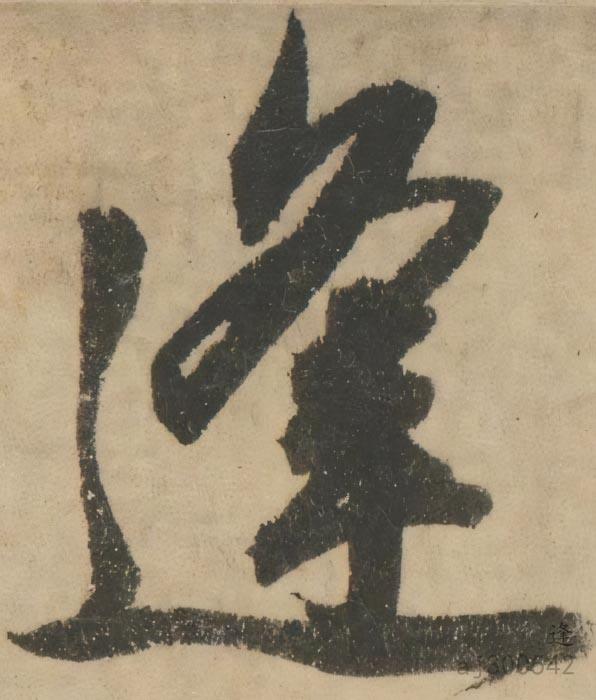 逢
逢
aj300642